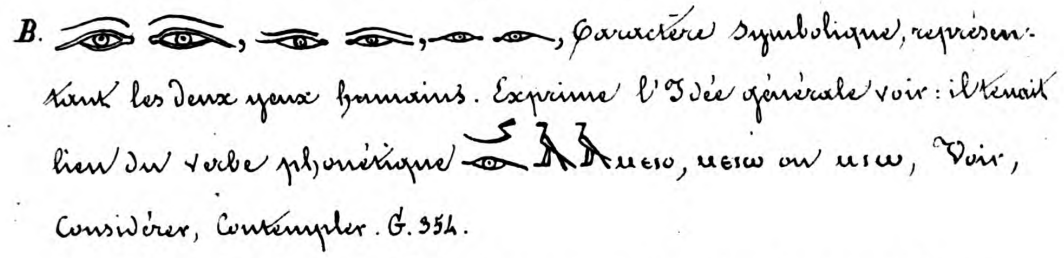 B. 𓂀𓂀, 𓁹𓁹, 𓁹𓁹, Caractère symbolique, représen-
tant les deux yeux humains. Exprime l'Idée générale voir : il tenait
lieu du verbe phonétique 𓌳𓁹𓄿𓄿 ⲙⲉⲓⲟ, ⲙⲉⲓⲱ ou ⲙⲓⲱ, Voir,
Considérer, Contempler. G. 354.